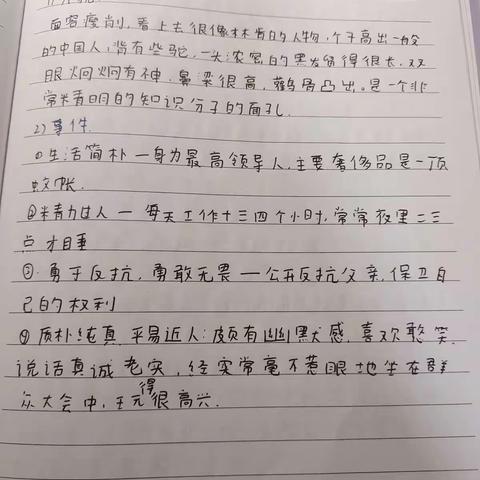 面容瘦削,看上去很像林肯的人物,个子高出一般
的中国人,背有些驼,一头浓密的黑发留得很长,双
眼炯炯有神,鼻梁很高,颧骨凸出。是一个非
常精明的知识分子的面孔.
2)事件.
①生活简朴—身为最高领导人,主要奢侈品是一顶
蚊帐.
②精力过人—每天工作十三四个小时,常常夜里二三
点才睡
③.勇于反抗,勇敢无畏—公开反抗父亲,保卫自
己的权利
④质朴纯真,平易近人:颇有幽默感,喜欢憨笑.
说话真诚老实,经常毫不惹眼地坐在群
众大会中,玩得很高兴.